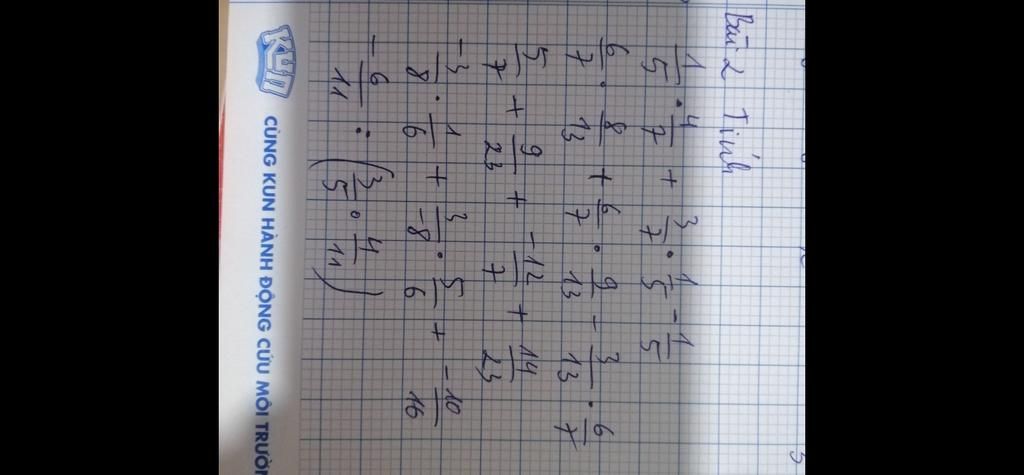 Bài 2 Tính
1/5 . 4/7 + 3/7 . 1/5 - 1/5
6/7 . 8/13 + 6/7 . 9/13 - 3/13 . 6/7
5/7 + 9/23 + -12/7 + 14/23
-3/8 . 1/6 + 3/-8 . 5/6 + -10/16
-6/11 : (3/5 . 4/11)
KUN CÙNG KUN HÀNH ĐỘNG CỨU MÔI TRƯỜN